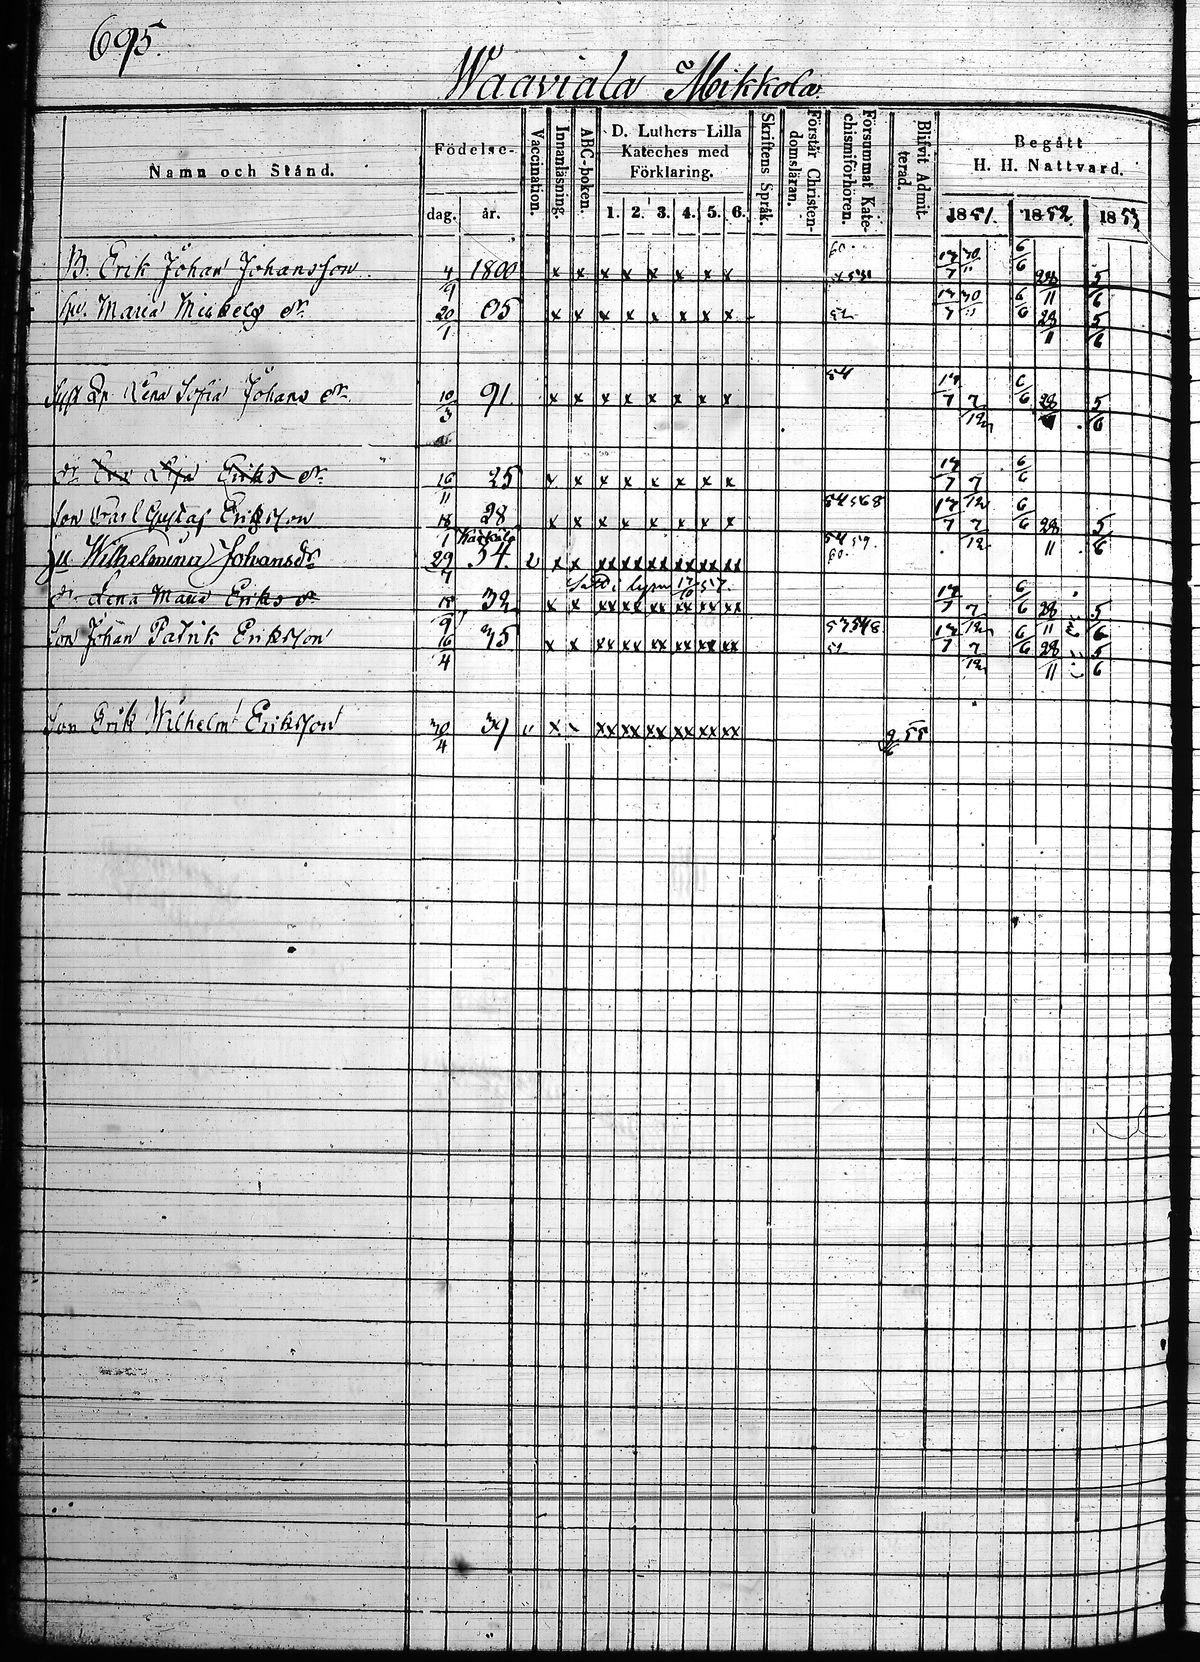 695.
Waaviala Mikkola
Namn och Stånd.
Födelse-
dag. år.
Vaccination.
Innanläsning.
ABC-boken.
D. Luthers Lilla
Kateches med
Förklaring.
1. 2. 3. 4. 5. 6.
Skriftens Språk.
Förstår Christen-
domsläran.
Försummat Kate-
chismiförhören.
Blifvit Admit-
terad.
Begått
H. H. Nattvard.
1851. 1852. 1853
B. Erik Johan Johansson 4/9 1800 x x x x x x x x 17/7 30/11 6/6 28/11 5/6
Maria Mickels dr 20/1 05 x x x x x x x x 52 17/7 30/11 6/6 28/11 5/6
Lena Sofia Johans dr 10/3 91 x x x x x x x x 54 17/7 7/12 6/6 28 5/6
dr Eva Lisa Eriks dr 16/11 25 x x x x x x x x 17/7 7/12 6/6
Son Carl Gustaf Eriksson 18/1 28 x x x x x x x x 17/7 7/12 6/6 28/11 5/6
Wilhelmina Johansdr 29/7 34. x x xx xx xx xx xx xx 54 59 60
dr Lena Maria Eriks dr 18/9 32 x x xx xx xx xx xx xx 17/7 7/12 6/6 28/11 5/6
Son Johan Patrik Eriksson 16/4 35 x x xx xx xx xx xx xx 17/7 7/12 6/6 28/11 5/6
Son Erik Wilhelm Eriksson 30/4 39 x x xx xx xx xx xx xx 55